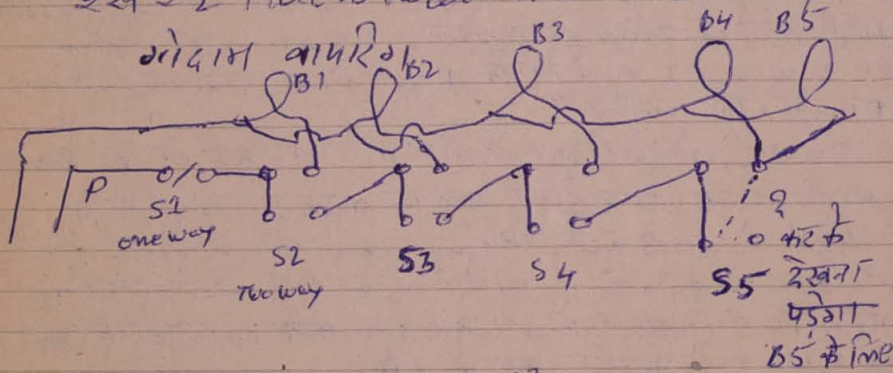 गोदाम वायरिंग
B1
B2
B3
B4
B5
P
S1
one way
S2
Two way
S3
S4
S5
?
करके
देखना
पड़ेगा
B5 के लिए